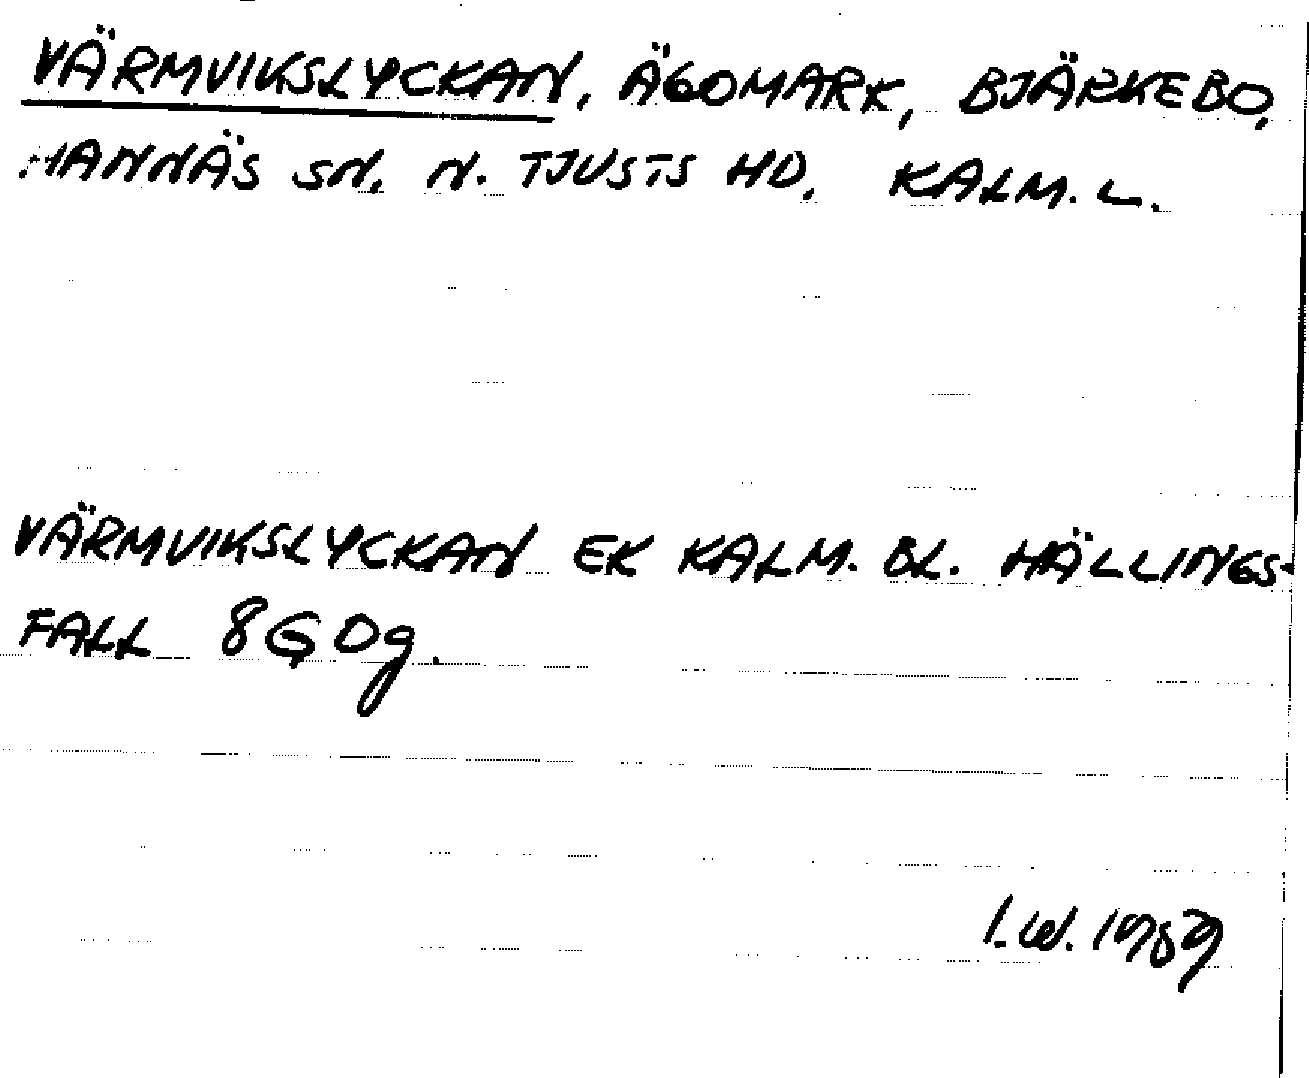 VÄRMVIKSLYCKAN, ÄGOMARK, BJÄRKEBO,
HANNÄS SN. N. TJUSTS HD. KALM. L.
VÄRMVIKSLYCKAN EK KALM. BL. HÄLLINGS-
FALL 8G0g.
I.W. 1989